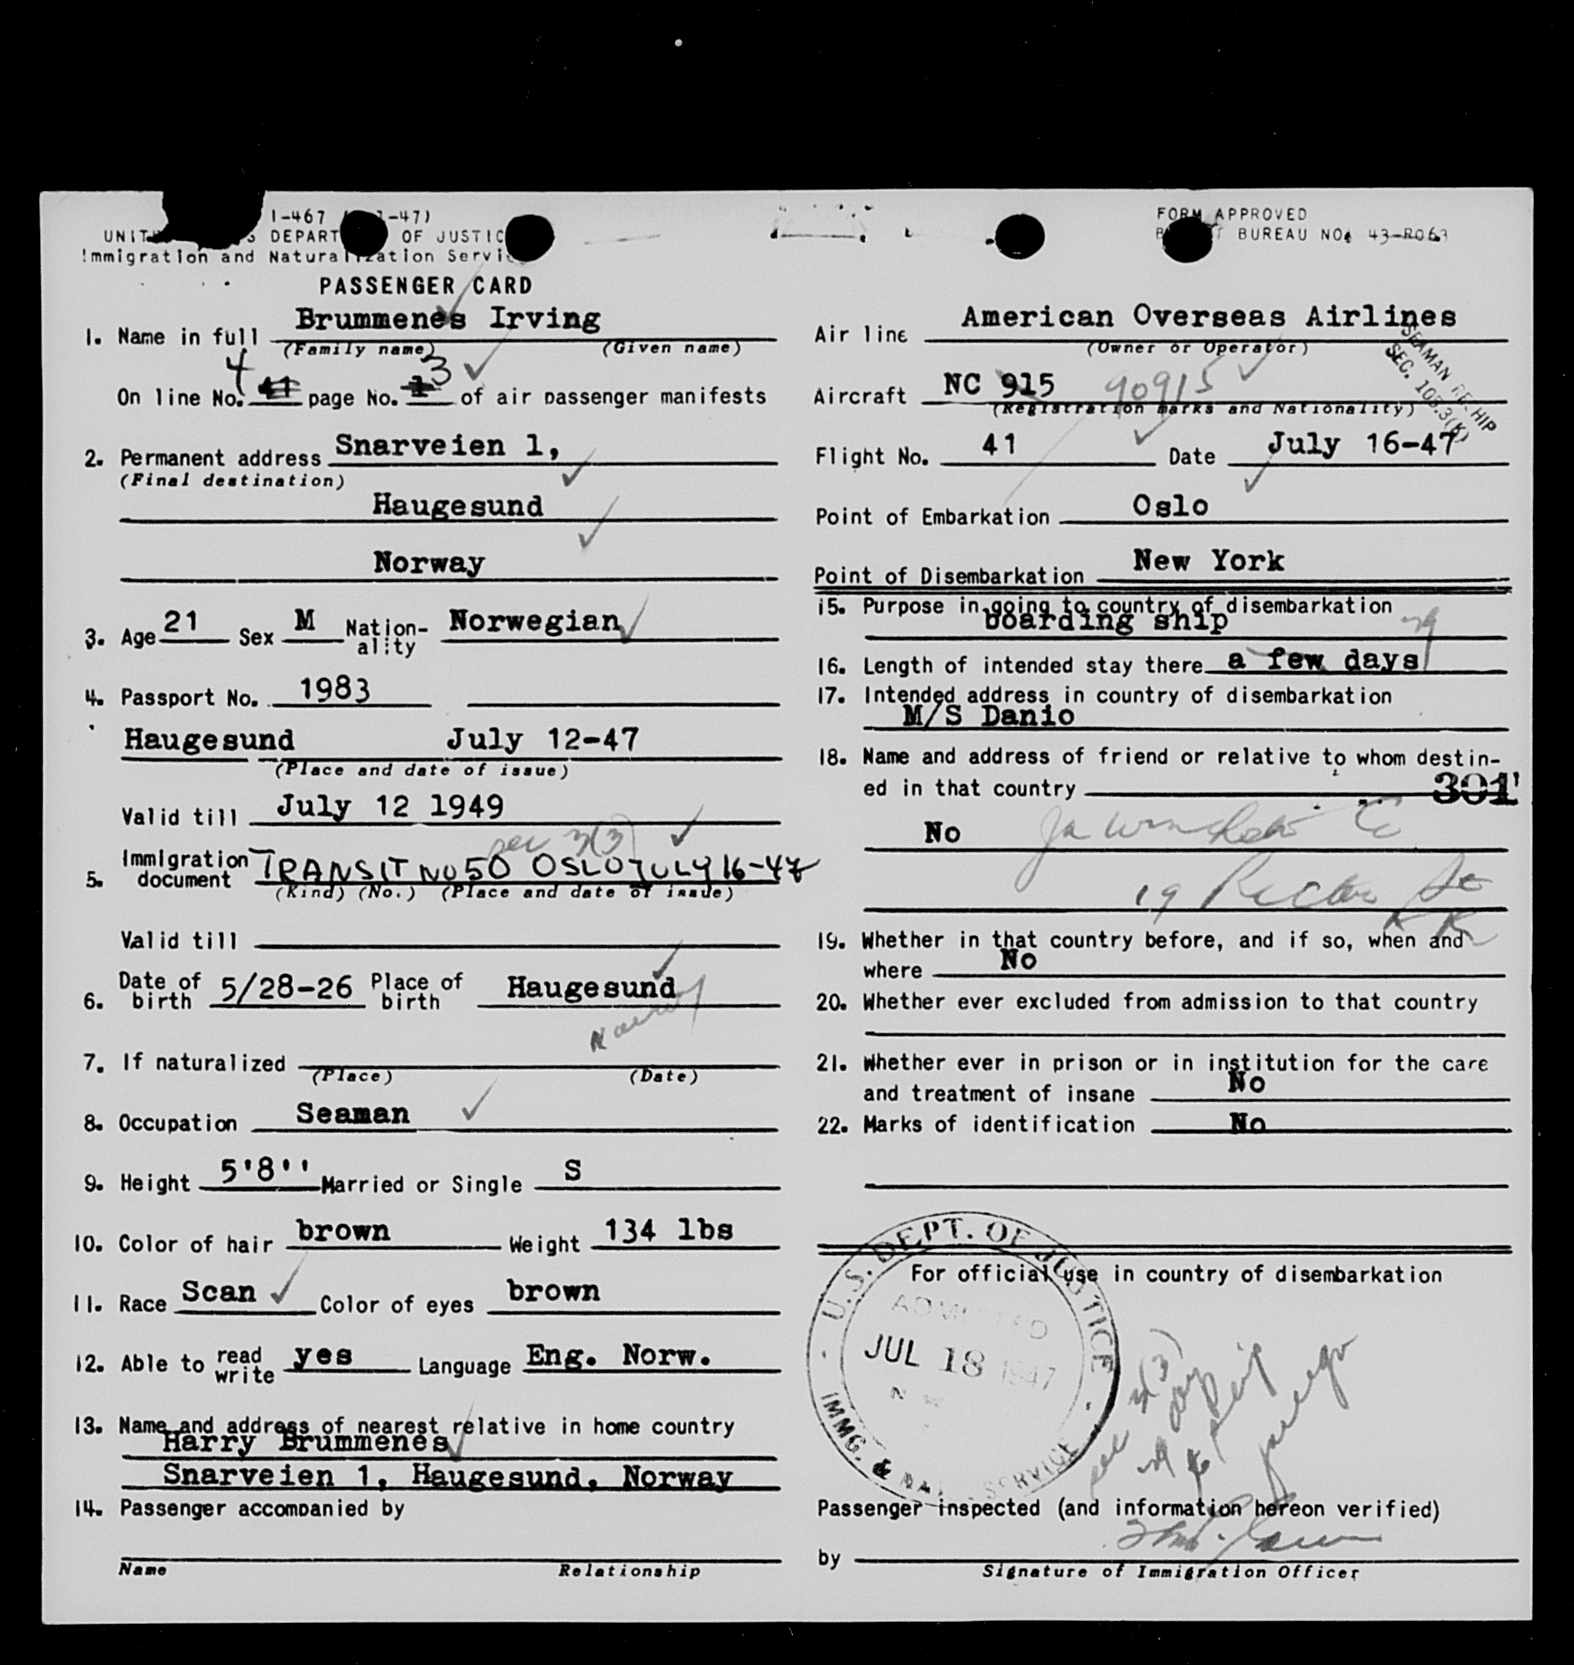 I-467 -47)
DEPART OF JUSTIC
Immigration and Naturalization Servi
PASSENGER CARD
1. Name in full Brummenes Irving
(Family name) (Given name)
On line No. 4 page No. 3 of air passenger manifests
2. Permanent address Snarveien 1,
(Final destination)
Haugesund
Norway
3. Age 21 Sex M Nation-
ality Norwegian
4. Passport No. 1983
Haugesund July 12-47
(Place and date of issue)
Valid till July 12 1949
sec 3(3)
5. Immigration
document TRANSIT NO 50 OSLO JULY 16-47
(Kind) (No.) (Place and date of issue)
Valid till
6. Date of
birth 5/28-26 Place of
birth Haugesund
Norway
7. If naturalized
(Place) (Date)
8. Occupation Seaman
9. Height 5'8'' Married or Single S
10. Color of hair brown Weight 134 lbs
11. Race Scan Color of eyes brown
12. Able to read
write yes Language Eng. Norw.
13. Name and address of nearest relative in home country
Harry Brummenes
Snarveien 1, Haugesund, Norway
14. Passenger accompanied by
Name Relationship
FORM APPROVED
BUREAU NO. 43-R063
Air line American Overseas Airlines
(Owner or Operator)
SEAMAN RESHIP
SEC. 105.3(K)
Aircraft NC 915 90915
(Registration marks and Nationality)
Flight No. 41 Date July 16-47
Point of Embarkation Oslo
Point of Disembarkation New York
15. Purpose in going to country of disembarkation
boarding ship
16. Length of intended stay there a few days
17. Intended address in country of disembarkation
M/S Danio
18. Name and address of friend or relative to whom destin-
ed in that country 301
No
19 Rector St
19. Whether in that country before, and if so, when and
where No
20. Whether ever excluded from admission to that country
21. Whether ever in prison or in institution for the care
and treatment of insane No
22. Marks of identification No
For official use in country of disembarkation
U.S. DEPT. OF JUSTICE
ADMITTED
JUL 18 1947
IMMG. & NAT. SERVICE
sec 3(3)
Passenger inspected (and information hereon verified)
by
Signature of Immigration Officer